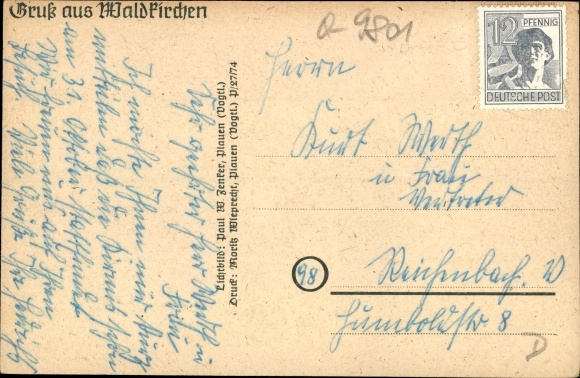 Gruß aus Waldkirchen
Q-9801
12 PFENNIG
DEUTSCHE POST
Sehr geehrter Herr Werth u
Frau
Ich möchte Ihnen nur kurz
mitteilen daß die Kirmes schon
am 31. Oktober stattfindet
Wir freuen uns auf Ihren
Besuch Viele Grüße
Lichtbild: Paul W. Zenker, Plauen (Vogtl.)
Druck: Moritz Wieprecht, Plauen (Vogtl.) P/27/74
Herrn
Kurt Werth
u Frau
Vertreter
98
Reichenbach. V
Humboldtstr 8
D